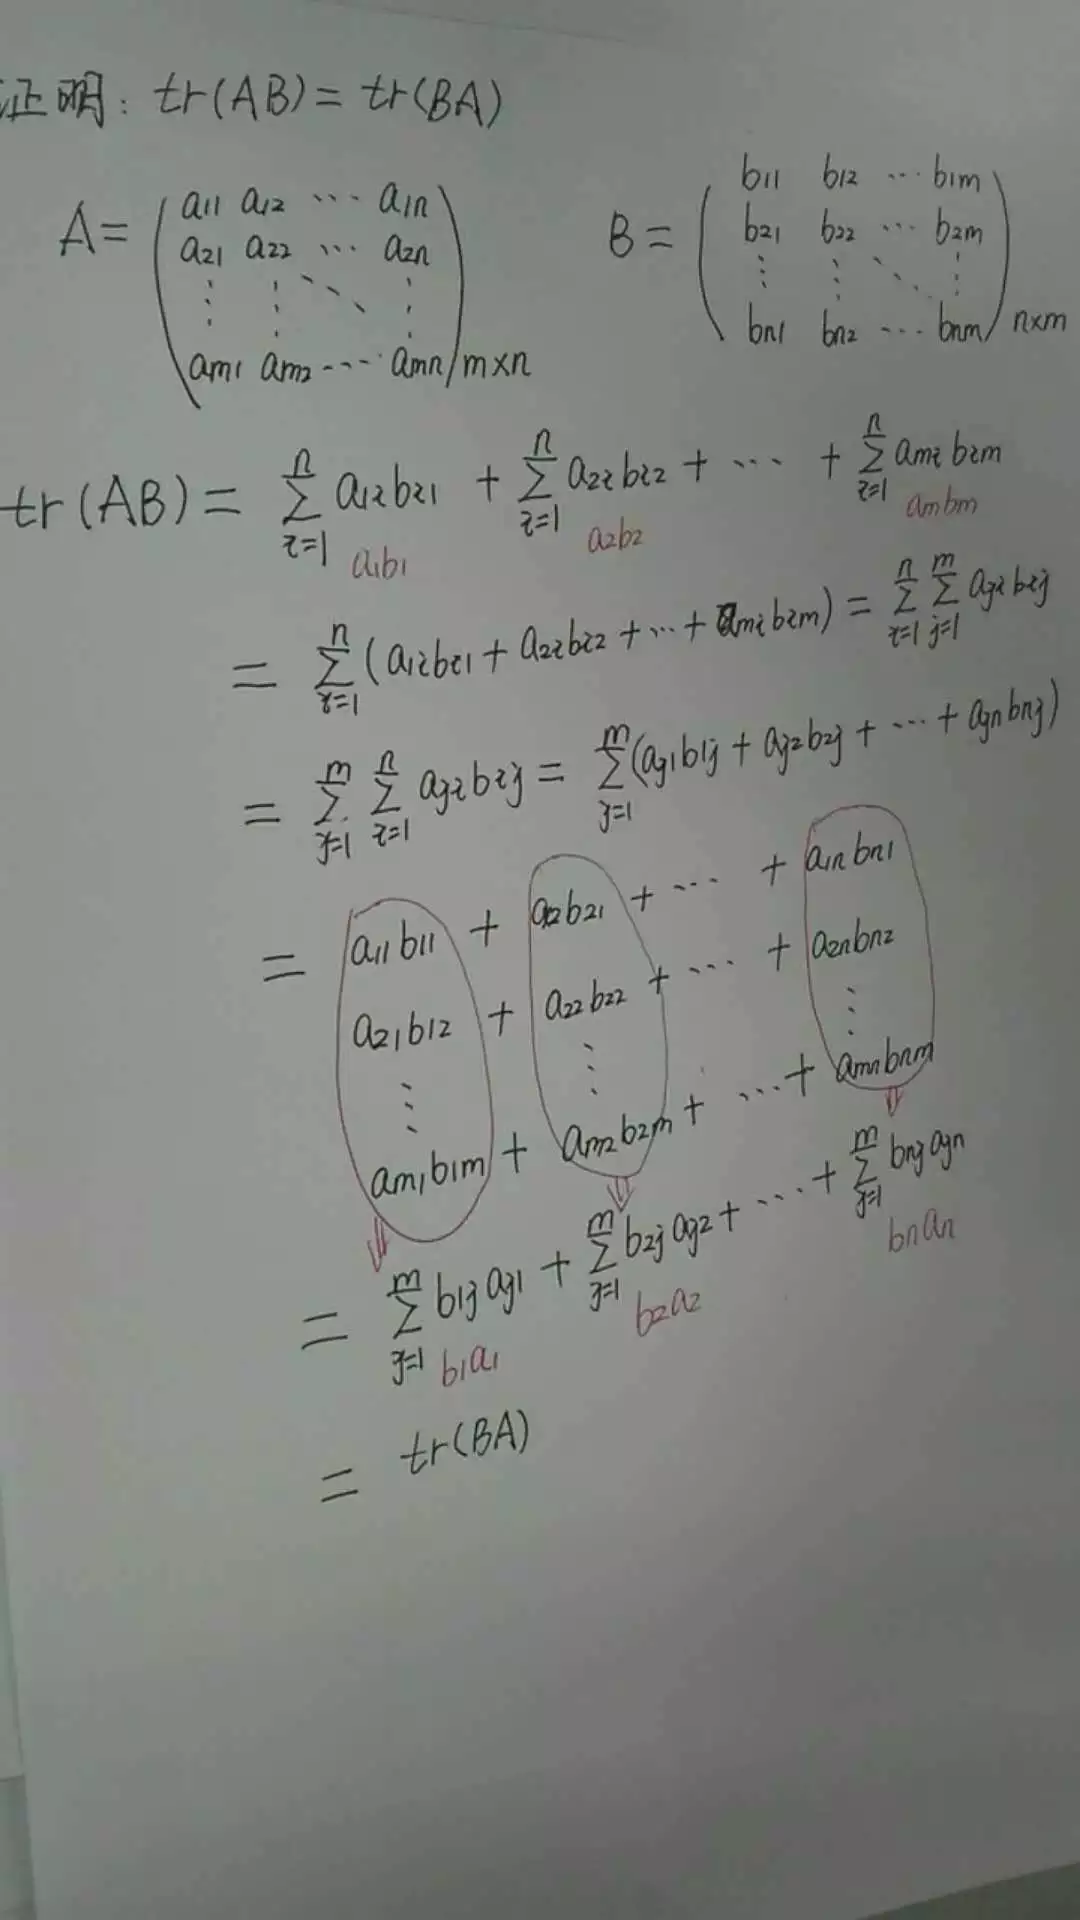 证明: tr(AB) = tr(BA)
A = ( a11 a12 ··· a1n
a21 a22 ··· a2n
⋮ ⋮ ⋱ ⋮
am1 am2 ··· amn ) m×n
B = ( b11 b12 ··· b1m
b21 b22 ··· b2m
⋮ ⋮ ⋱ ⋮
bn1 bn2 ··· bnm ) n×m
tr(AB) = ∑_{i=1}^{n} a1i bi1 + ∑_{i=1}^{n} a2i bi2 + ··· + ∑_{i=1}^{n} ami bim
a1b1 a2b2 ambm
= ∑_{i=1}^{n} (a1i bi1 + a2i bi2 + ··· + ami bim) = ∑_{i=1}^{n} ∑_{j=1}^{m} aji bij
= ∑_{j=1}^{m} ∑_{i=1}^{n} aji bij = ∑_{j=1}^{m} (aj1 b1j + aj2 b2j + ··· + ajn bnj)
= a11 b11 + a12 b21 + ··· + a1n bn1
a21 b12 + a22 b22 + ··· + a2n bn2
⋮ ⋮ ⋮
am1 b1m + am2 b2m + ··· + amn bnm
= ∑_{j=1}^{m} b1j aj1 + ∑_{j=1}^{m} b2j aj2 + ··· + ∑_{j=1}^{m} bnj ajn
b1a1 b2a2 bnan
= tr(BA)